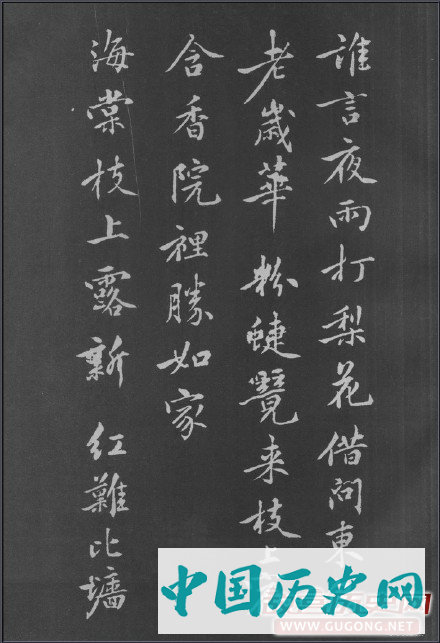 誰言夜雨打梨花借問東
老歲華粉蜨覽来枝上
含香院裡勝如家
海棠枝上露新红難比墻
中国历史网
WWW.GUGONG.NET